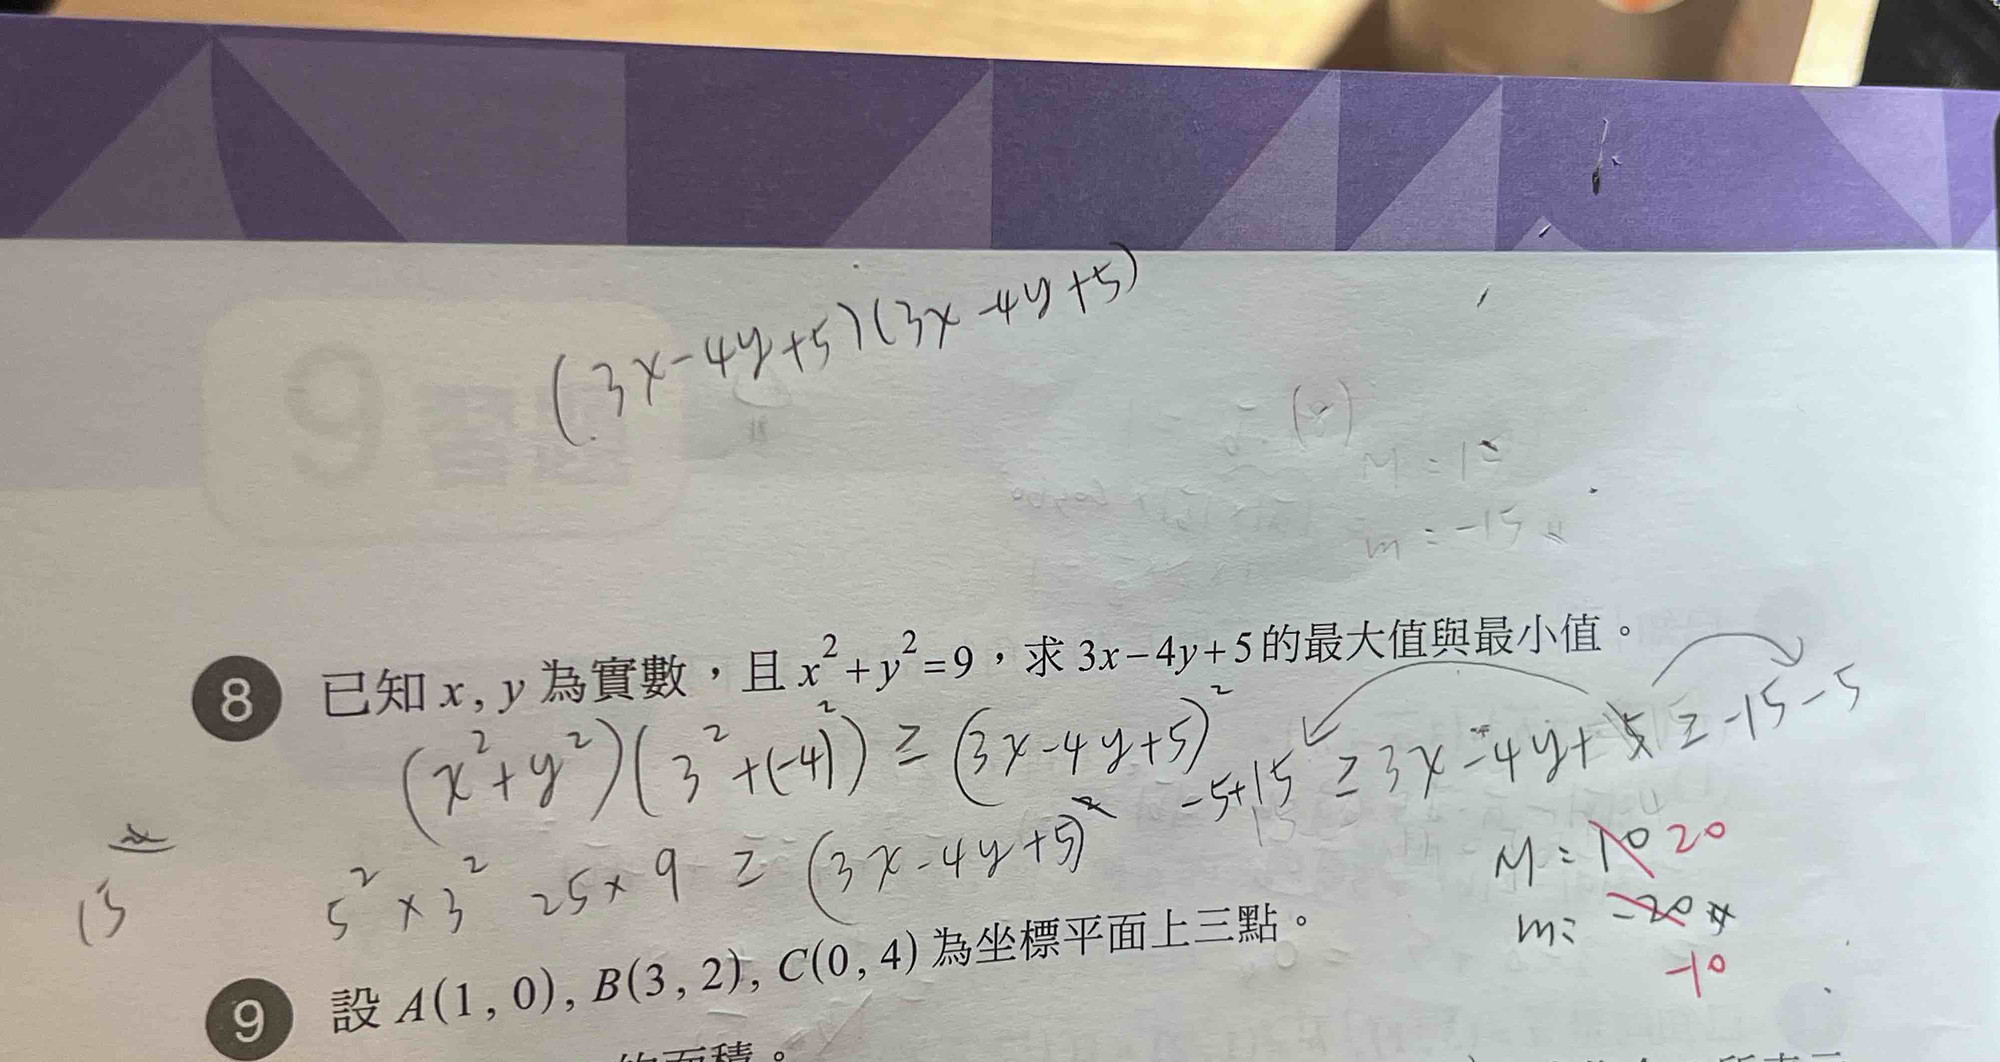 (3x-4y+5)(3x-4y+5)
(8)
M = 15
m = -15
8 已知 x, y 為實數，且 x²+y²=9，求 3x-4y+5 的最大值與最小值。
(x²+y²)(3²+(-4)²) ≥ (3x-4y+5)²
-5+15 ≥ 3x-4y+5 ≥ -15-5
15
5² × 3² 25×9 ≥ (3x-4y+5)²
M = 10 20
m = -20
-10
9 設 A(1, 0), B(3, 2), C(0, 4) 為坐標平面上三點。
的面積。